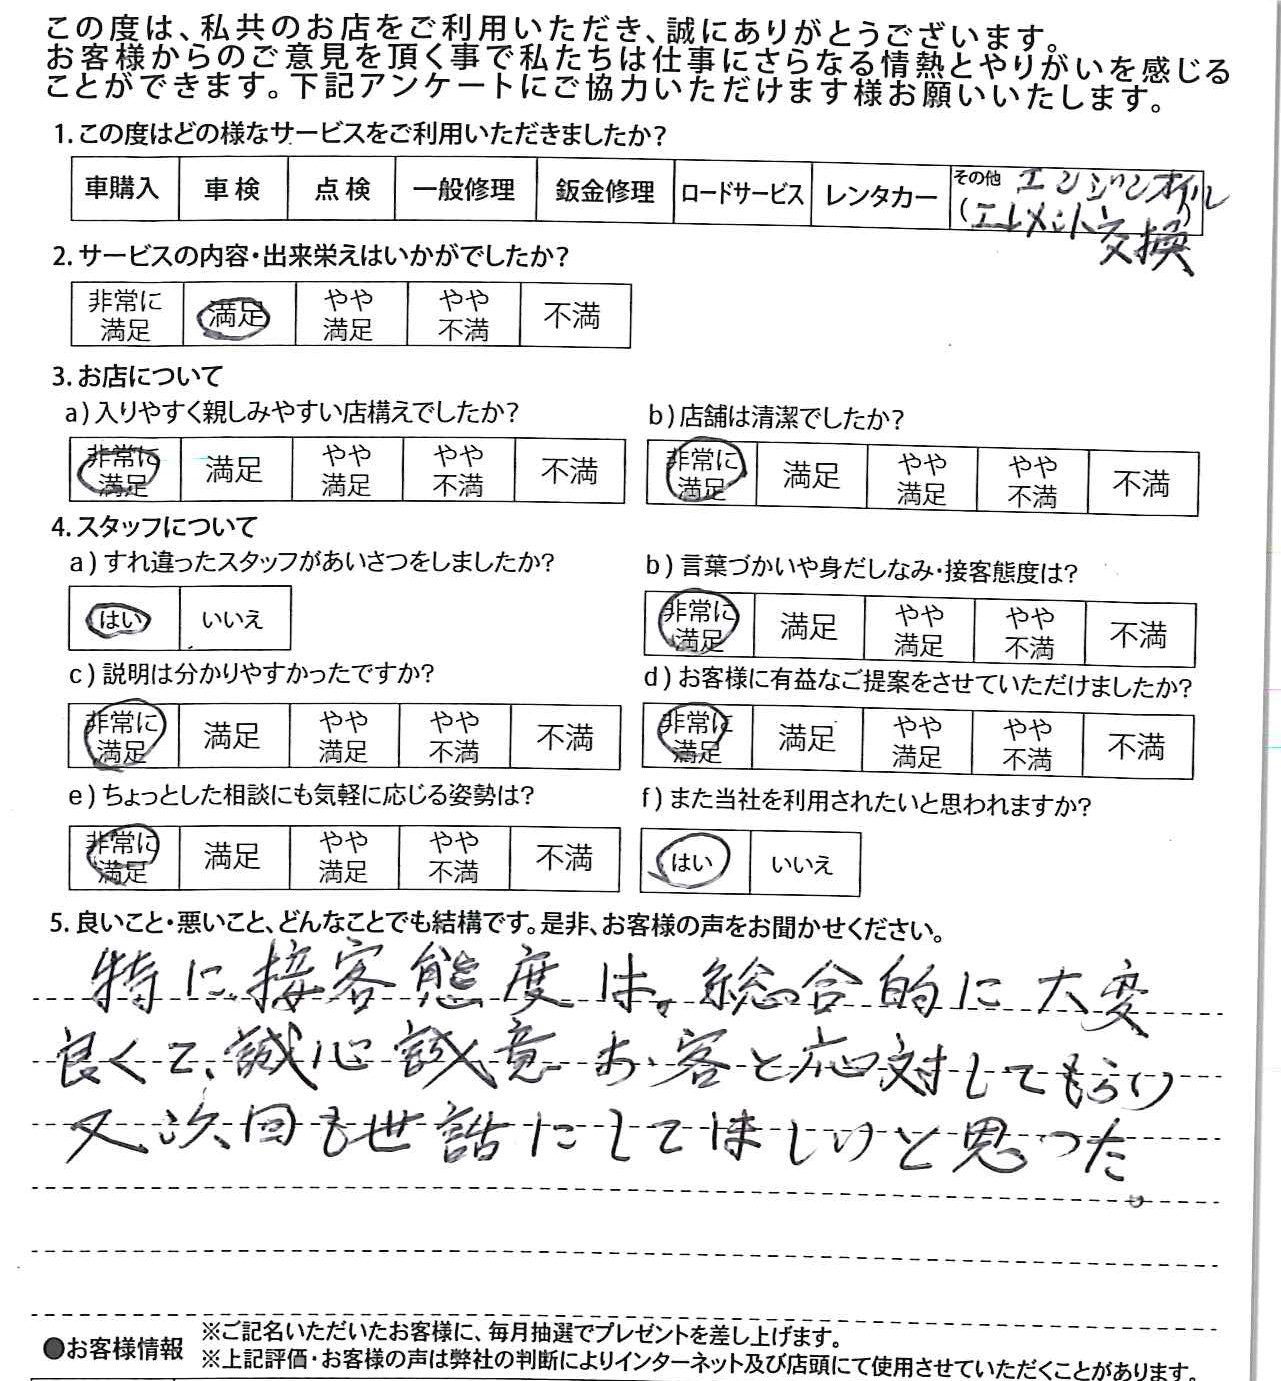 この度は、私共のお店をご利用いただき、誠にありがとうございます。
お客様からのご意見を頂く事で私たちは仕事にさらなる情熱とやりがいを感じる
ことができます。下記アンケートにご協力いただけます様お願いいたします。
1.この度はどの様なサービスをご利用いただきましたか?
車購入 車検 点検 一般修理 鈑金修理 ロードサービス レンタカー その他 エンジンオイル
(エレメント交換)
2.サービスの内容・出来栄えはいかがでしたか?
非常に満足 満足 やや満足 やや不満 不満
3.お店について
a)入りやすく親しみやすい店構えでしたか?
非常に満足 満足 やや満足 やや不満 不満
b)店舗は清潔でしたか?
非常に満足 満足 やや満足 やや不満 不満
4.スタッフについて
a)すれ違ったスタッフがあいさつをしましたか?
はい いいえ
b)言葉づかいや身だしなみ・接客態度は?
非常に満足 満足 やや満足 やや不満 不満
c)説明は分かりやすかったですか?
非常に満足 満足 やや満足 やや不満 不満
d)お客様に有益なご提案をさせていただけましたか?
非常に満足 満足 やや満足 やや不満 不満
e)ちょっとした相談にも気軽に応じる姿勢は?
非常に満足 満足 やや満足 やや不満 不満
f)また当社を利用されたいと思われますか?
はい いいえ
5.良いこと・悪いこと、どんなことでも結構です。是非、お客様の声をお聞かせください。
特に接客態度は。総合的に大変
良くて、誠心誠意お客と応対してもらい
又次回も世話にしてほしいと思った。
●お客様情報 ※ご記名いただいたお客様に、毎月抽選でプレゼントを差し上げます。
※上記評価・お客様の声は弊社の判断によりインターネット及び店頭にて使用させていただくことがあります。